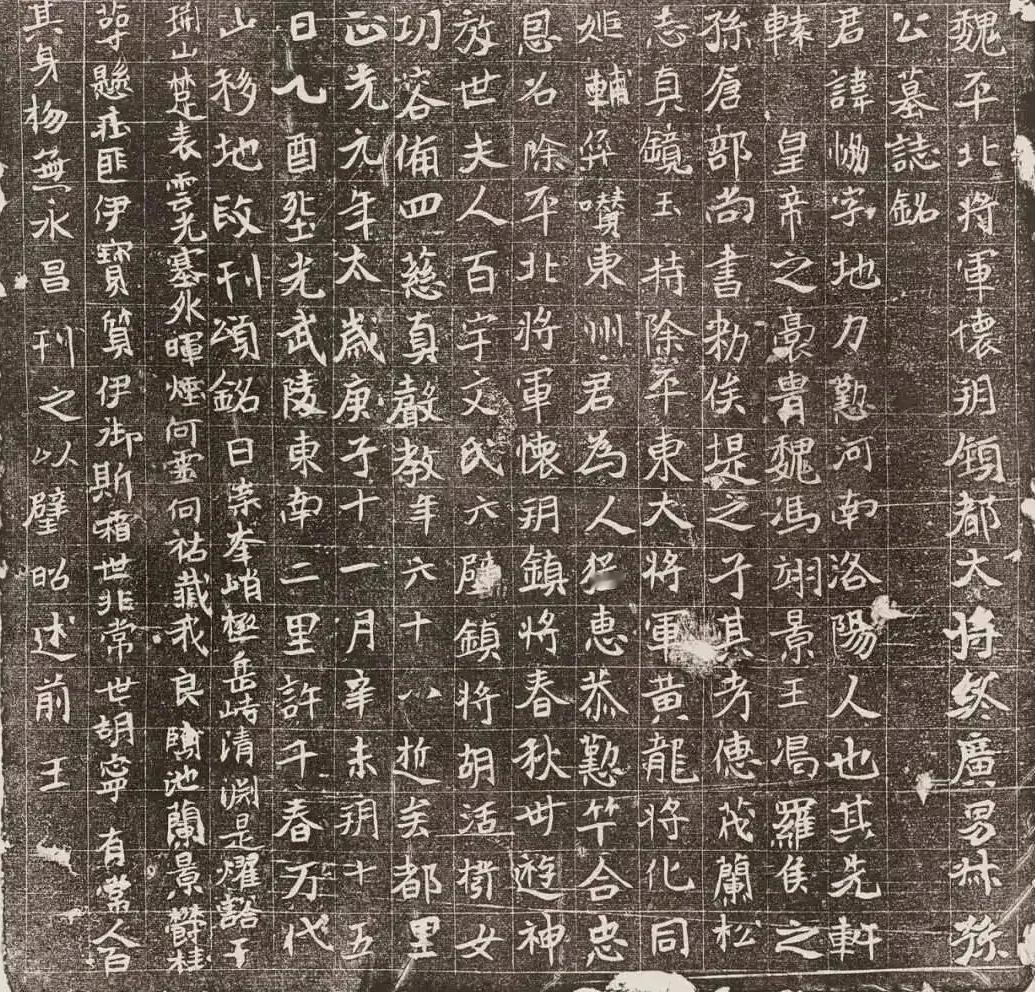 魏平北將軍懷朔鎮都大將終廣男叔孫
公墓誌銘
君諱協字地力懃河南洛陽人也其先軒
轅皇帝之裔胄魏馮翊景王渴羅侯之
孫倉部尚書勑俟堤之子其考德茂蘭松
志真鏡玉持除平東大將軍黃龍將化同
姬輔彝讚東州君為人恭懃竿合忠
恩召除平北將軍懷朔鎮將春秋卌遊神
放世夫人百宇文氏六壁鎮將胡活撥女
功容備四慈真聲教年六十八逝矣都里
正光元年太歲庚子十一月辛未朔十五
日乙酉坒光武陵東南二里許千春万代
山移地改刊頌銘曰嵩峯峭極岳峙清淵是燿豁于
開山楚表雲光塞外暉煙何靈何祜藏我良隩池蘭景欝桂
崿懸疪匪伊寶筭伊御斯霜世非常世胡寧有常人百
其身楊無永昌刊之以璧昭述前王